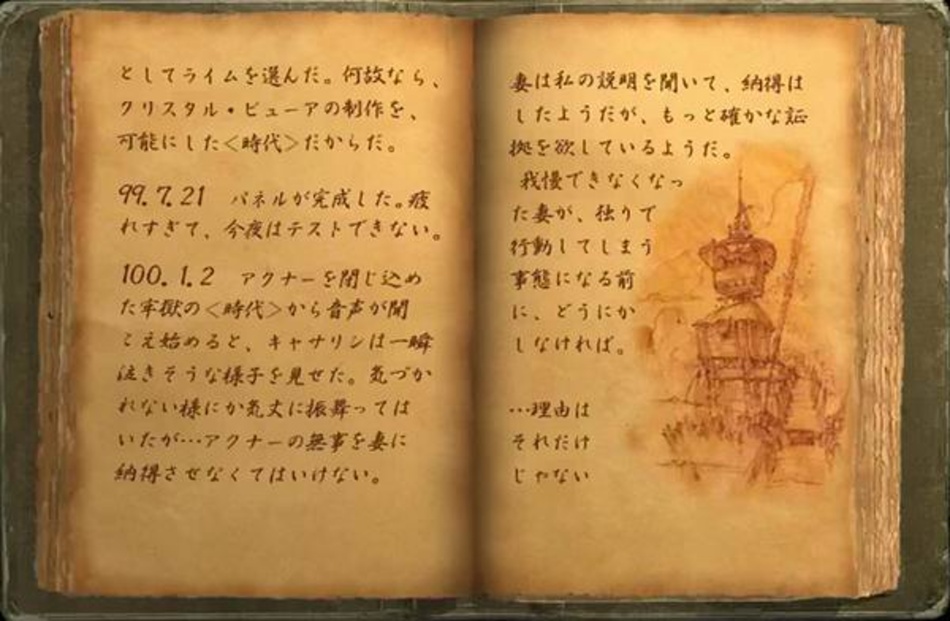 としてライムを選んだ。何故なら、
クリスタル・ビューアの制作を、
可能にした<時代>だからだ。
99.7.21 パネルが完成した。疲
れすぎて、今夜はテストできない。
100.1.2 アクナーを閉じ込め
た牢獄の<時代>から音声が聞
こえ始めると、キャサリンは一瞬
泣きそうな様子を見せた。気づか
れない様にか気丈に振舞っては
いたが…アクナーの無事を妻に
納得させなくてはいけない。
妻は私の説明を聞いて、納得は
したようだが、もっと確かな証
拠を欲しているようだ。
我慢できなくなっ
た妻が、独りで
行動してしまう
事態になる前
に、どうにか
しなければ。
…理由は
それだけ
じゃない